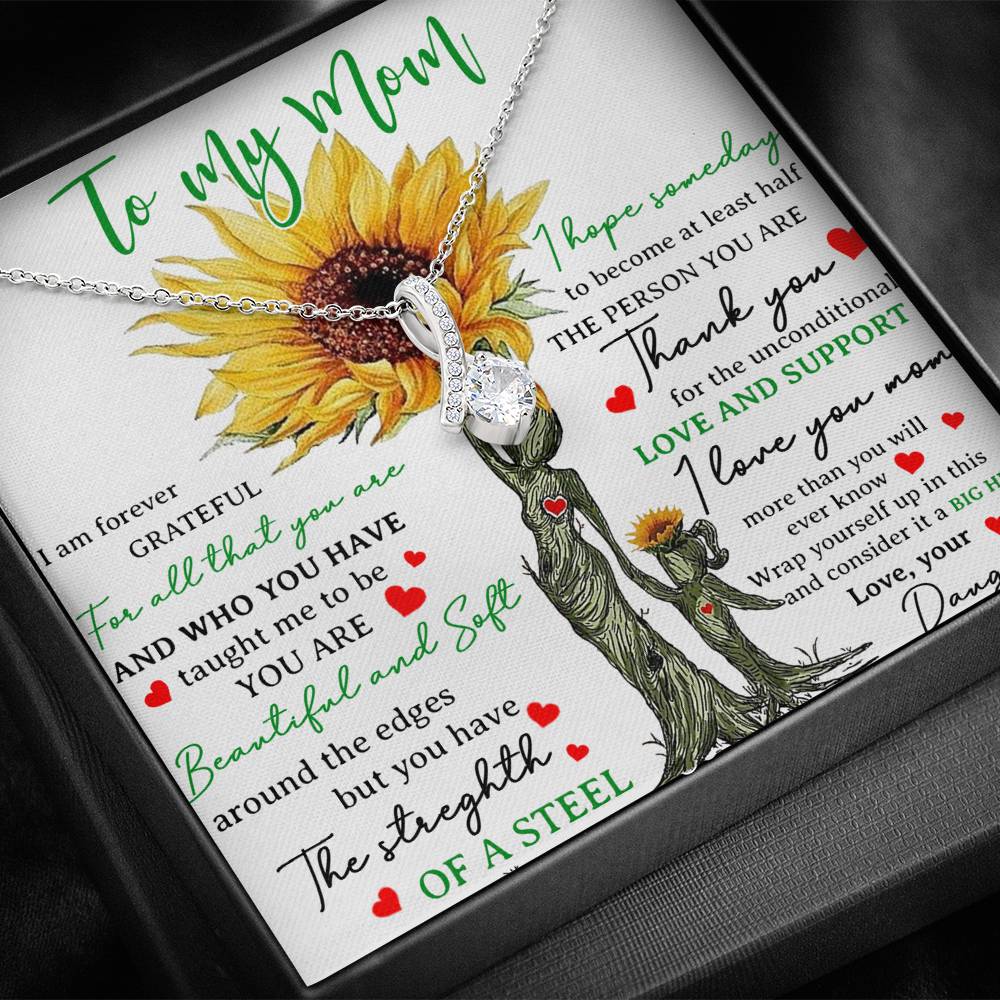 To My Mom
I am forever
GRATEFUL
For all that you are
AND WHO YOU HAVE
taught me to be
YOU ARE
Beautiful and Soft
around the edges
but you have
The streghth
OF A STEEL
I hope someday
to become at least half
THE PERSON YOU ARE
Thank you
for the unconditional
LOVE AND SUPPORT
I love you mom
more than you will
ever know
Wrap yourself up in this
and consider it a BIG
Love, your